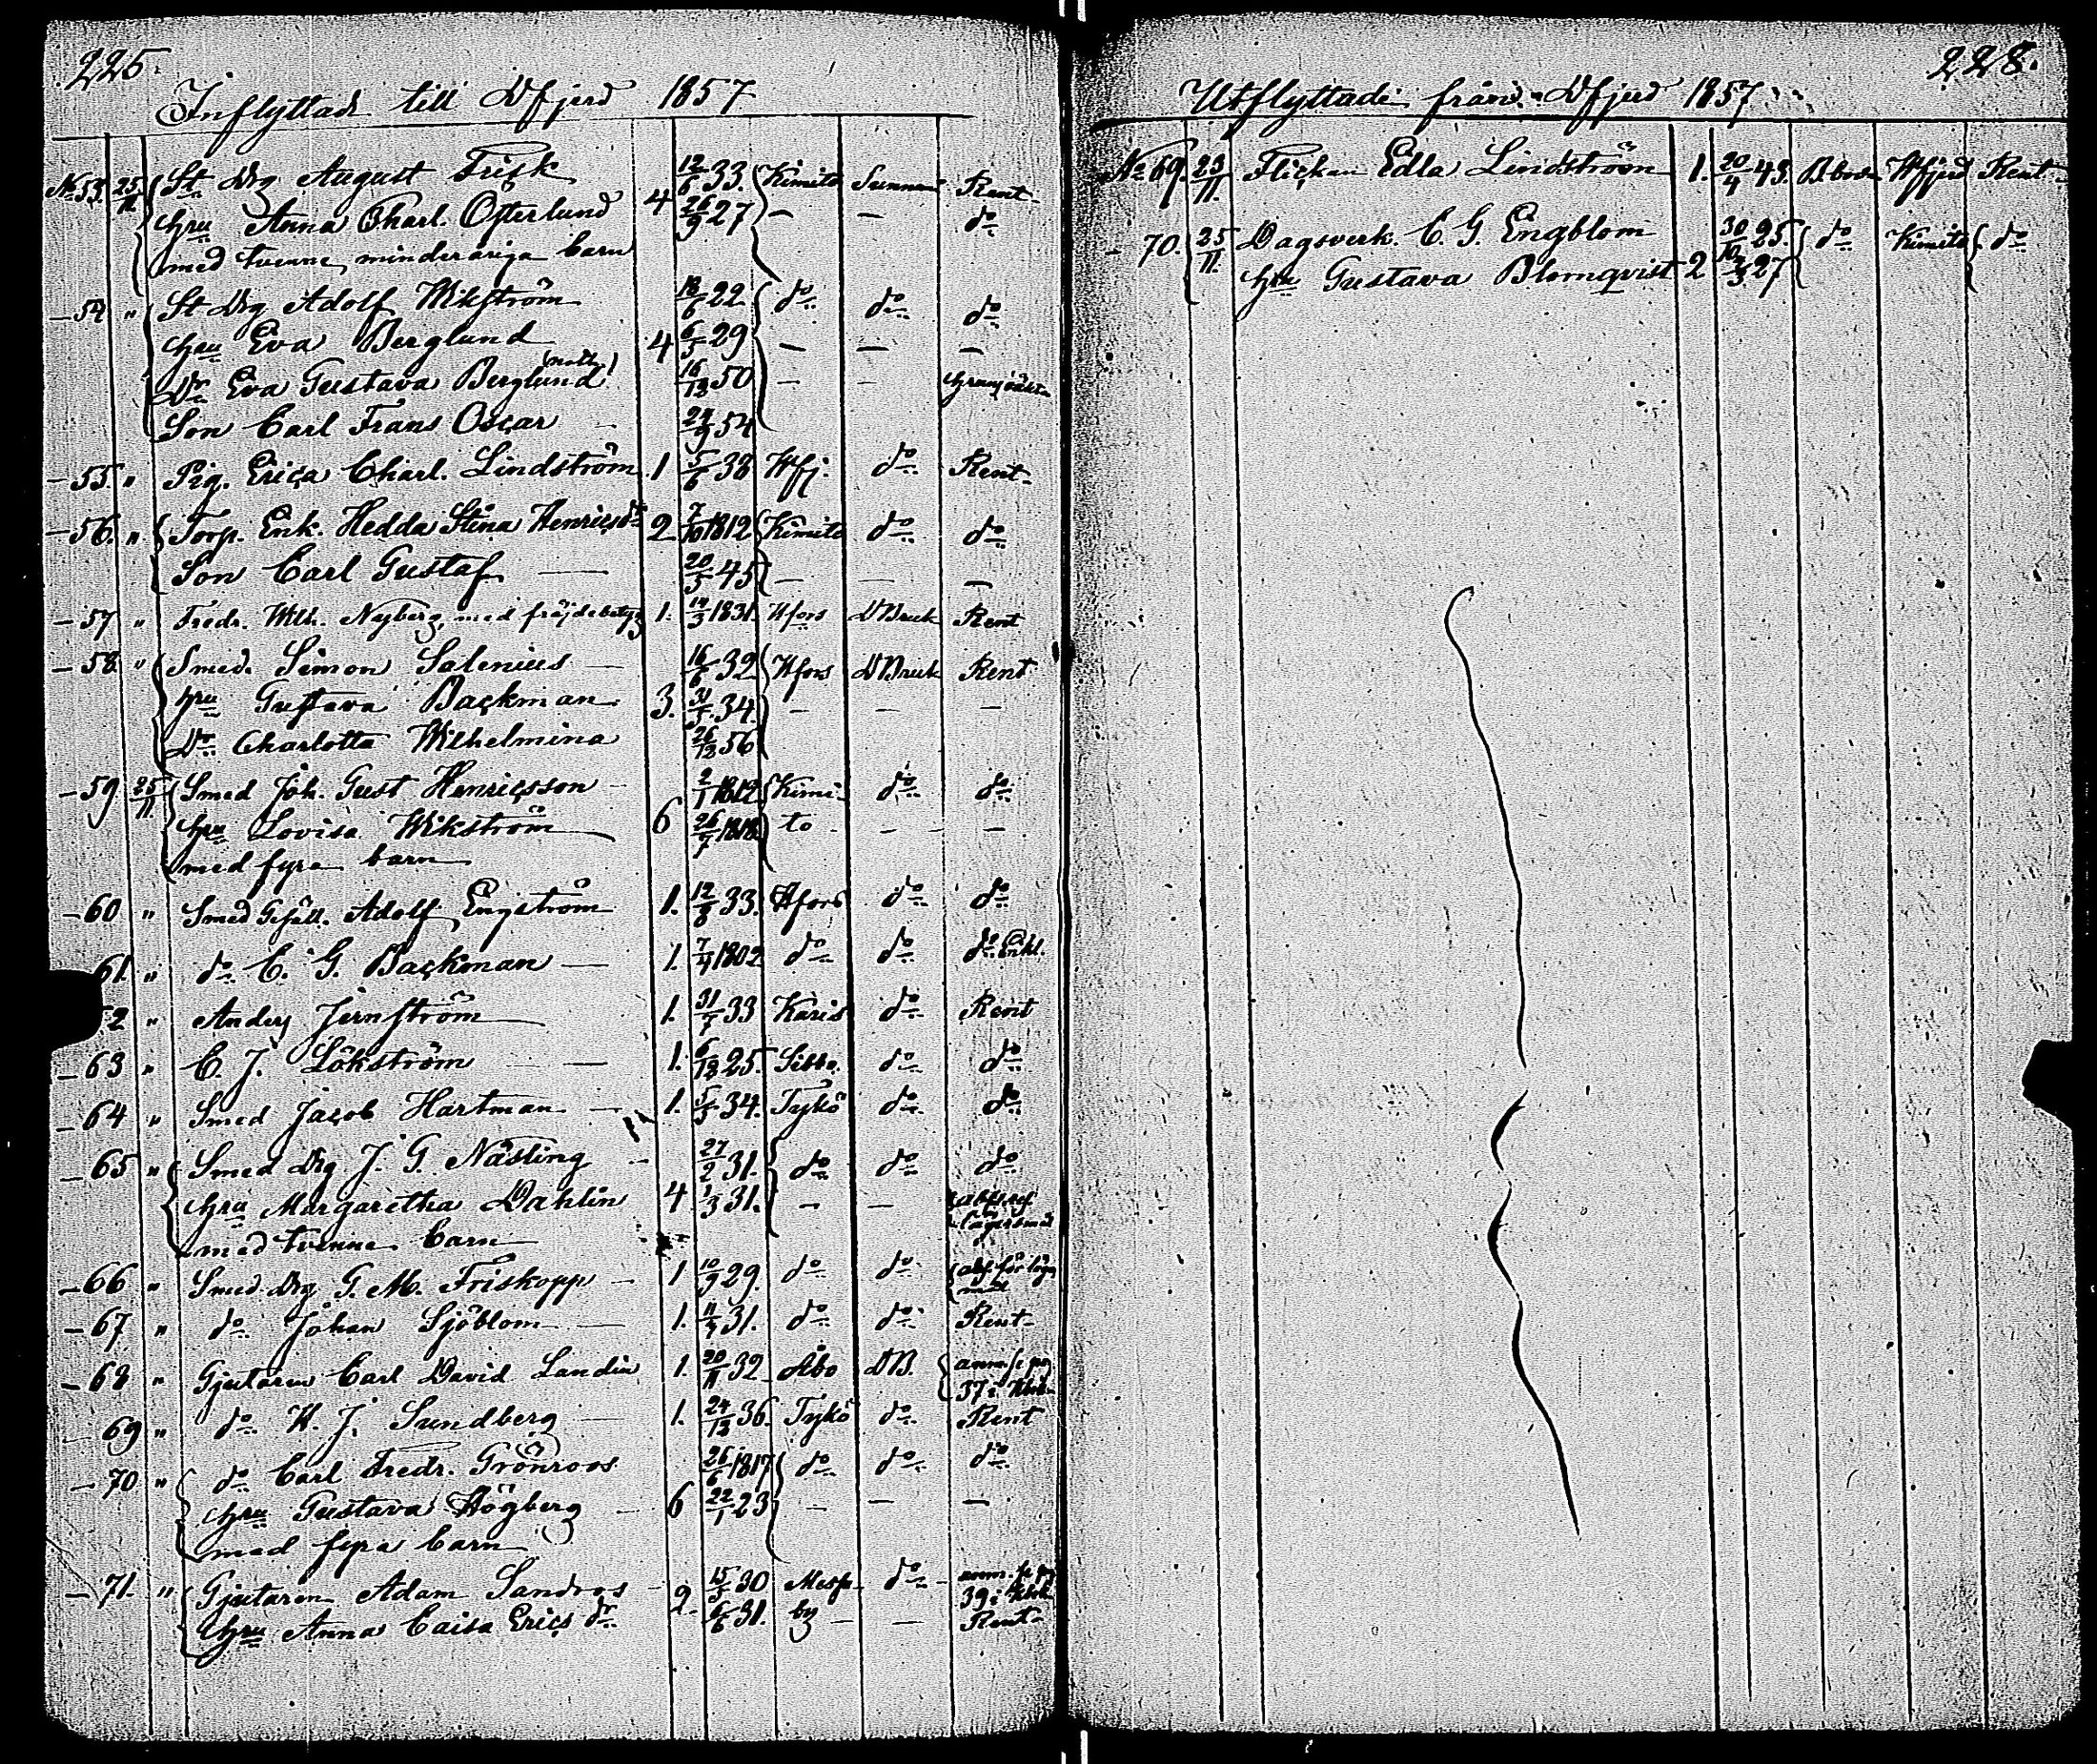 225.
Inflyttade till Dfjerd 1857
No 53. 25/11 St Drg August Frisk 12/6 33. Kimito Sunnan Rent
hru Anna Charl. Osterlund 4 26/9 27 — — do
med tvenne minderåriga barn
— 54 " St Drg Adolf Wikström 18/6 22 do do do
hru Eva Berglund 4 6/5 29 — — —
Dr Eva Gustava Berglund 16/12 50 — —
Son Carl Frans Oscar — 24/9 54
— 55. " Pig. Erica Charl. Lindström. 1 5/6 38 Wfj. do Rent
— 56. " Torp. Enk. Hedda Stina Henricsdr 2 7/10 1812 Kimito do do
Son Carl Gustaf — 20/5 45 — — —
— 57 " Fredr. Wilh. Nyberg med fräjdebetyg 1. 14/3 1831. Hfors DBruk Rent
— 58 " Smed. Simon Salenius — 16/6 32 Hfors DBruk Rent
hru Gustava Backman 3. 31/5 34. — — —
Dr Charlotta Wilhelmina 26/12 56
— 59 25/11. Smed Joh. Gust Henricsson — 2/1 1812 Kimi- do do
hru Lovisa Wikström 6 26/7 1818 to — —
med fyra barn
— 60 " Smed Gesäll. Adolf Engström 1. 12/8 33. Hfors do do
61. " do C. G. Backman — 1. 7/4 1802 do do do Enkl.
2 " Anders Jernström 1. 31/7 33 Karis do Rent
— 63 " C. J. Lökström — 1. 6/12 25. Sibbo. do do
— 64 " Smed Jacob Hartman — 1. 5/5 34. Tykö do do
— 65 " Smed Drg J. G. Nästing — 27/2 31. do do do
hru Margaretha Dahlin 4 1/3 31. — —
med tvenne barn
— 66 " Smed Drg G. M. Friskopp — 1 10/9 29. do do
— 67 " do Johan Sjöblom — 1. 11/9 31. do do Rent
— 68 " Gjutaren Carl David Landin 1. 20/11 32 Åbo DB. anm. se pag.
37 i
— 69 " do W. J. Sundberg — 1. 24/12 36. Tykö do Rent
— 70 " do Carl Fredr. Grönroos 26/6 1817 do do do
hru Gustava Högberg — 6 22/1 23 — — —
med fyra barn
— 71. " Gjutaren Adam Sandros — 15/5 30 Mesu- do anm. se pag
hru Anna Caisa Erics dr 2 6/6 31. by — — 39 i
Rent
228.
Utflyttade från Dfjerd 1857.
No 69. 23/11. Flickan Edla Lindström 1. 20/4 43. Wfjerd Rent
— 70. 25/11. Dagsverk. C. G. Engblom 30/10 25. do Kimito do
hru Gustava Blomqvist 2 2/3 27